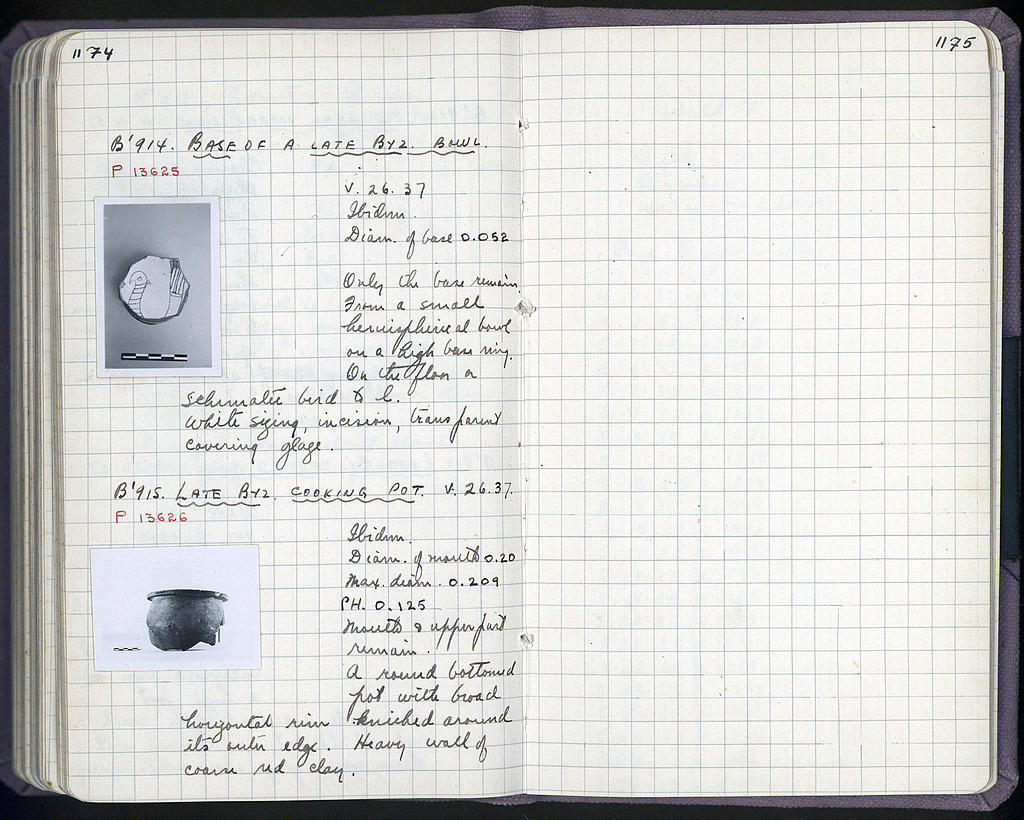 1174
1175
B'914. BASE OF A LATE BYZ. BOWL.
P 13625
V. 26. 37
Ibidem.
Diam. of base 0.052
Only the base remain.
From a small
hemispherical bowl
on a high base ring.
On the floor a
schematic bird to l.
White sizing, incision, transparent
covering glaze.
B'915. LATE BYZ. COOKING POT. V. 26.37.
P 13626
Ibidem.
Diam. of mouth 0.20
Max. diam. 0.209
PH. 0.125
Mouth & upper part
remain.
A round bottomed
pot with broad
horizontal rim around
its outer edge. Heavy wall of
coarse red clay.